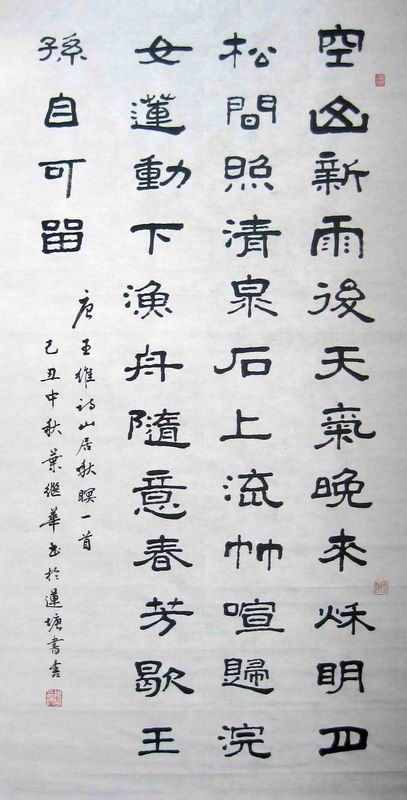 空山新雨後天氣晚來秋明月
松間照清泉石上流竹喧歸浣
女蓮動下漁舟隨意春芳歇王
孫自可留
唐王維詩山居秋暝一首
己丑中秋葉繼華书於蓮塘書舍